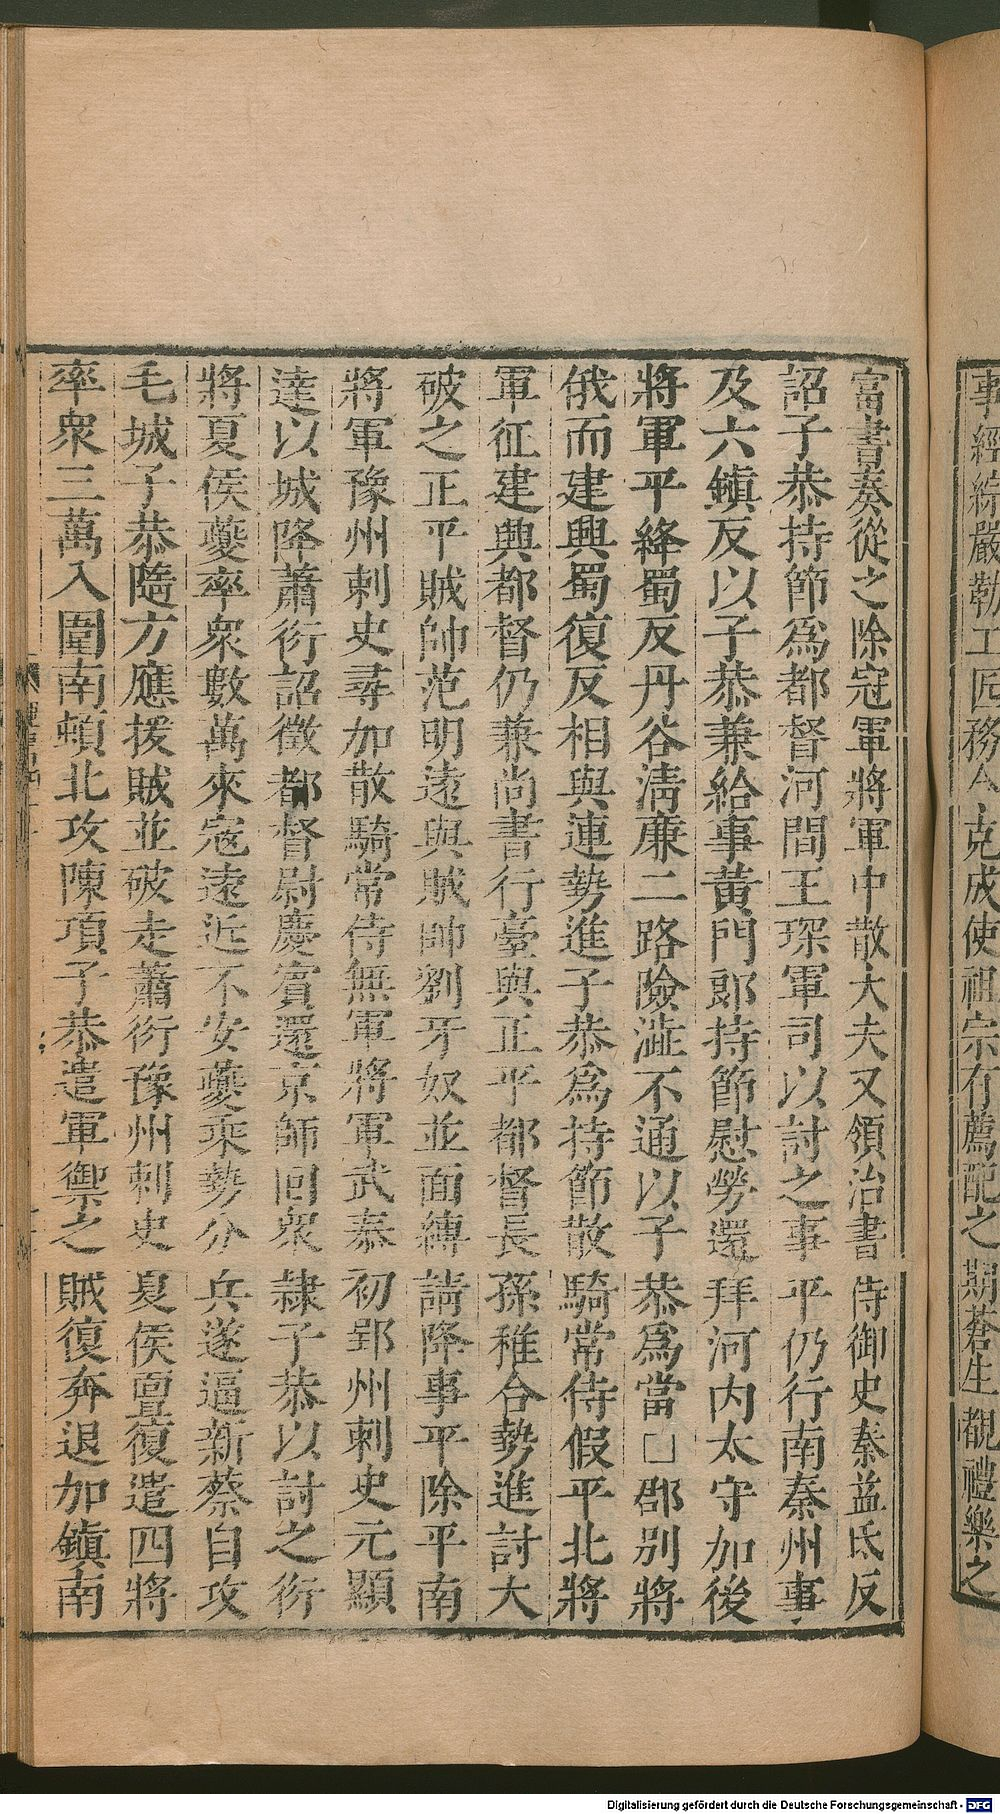 事經綜嚴勒工匠務令克成使祖宗有薦配之期蒼生覩禮樂之
富書奏從之除冠軍將軍中散大夫又領治書侍御史秦益氐反
詔子恭持節爲都督河間王琛軍司以討之事平仍行南秦州事
及六鎮反以子恭兼給事黃門郎持節慰勞還拜河内太守加後
將軍平絳蜀反丹谷清廉二路險澁不通以子恭爲當□郡別將
俄而建興蜀復反相與連勢進子恭爲持節散騎常侍假平北將
軍征建興都督仍兼尚書行臺與正平都督長孫稚合勢進討大
破之正平賊帥范明遠與賊帥劉牙奴並面縛請降事平除平南
將軍豫州刺史尋加散騎常侍無軍將軍武泰初郢州刺史元顯
達以城降蕭衍詔徵都督尉慶賓還京師回衆隸子恭以討之衍
將夏侯夔率衆數萬來寇遠近不安夔乘勢分兵遂逼新蔡自攻
毛城子恭隨方應援賊並破走蕭衍豫州刺史夏侯亶復遣四將
率衆三萬入圍南頓北攻陳項子恭遣軍禦之賊復奔退加鎮南
Digitalisierung gefördert durch die Deutsche Forschungsgemeinschaft - DFG